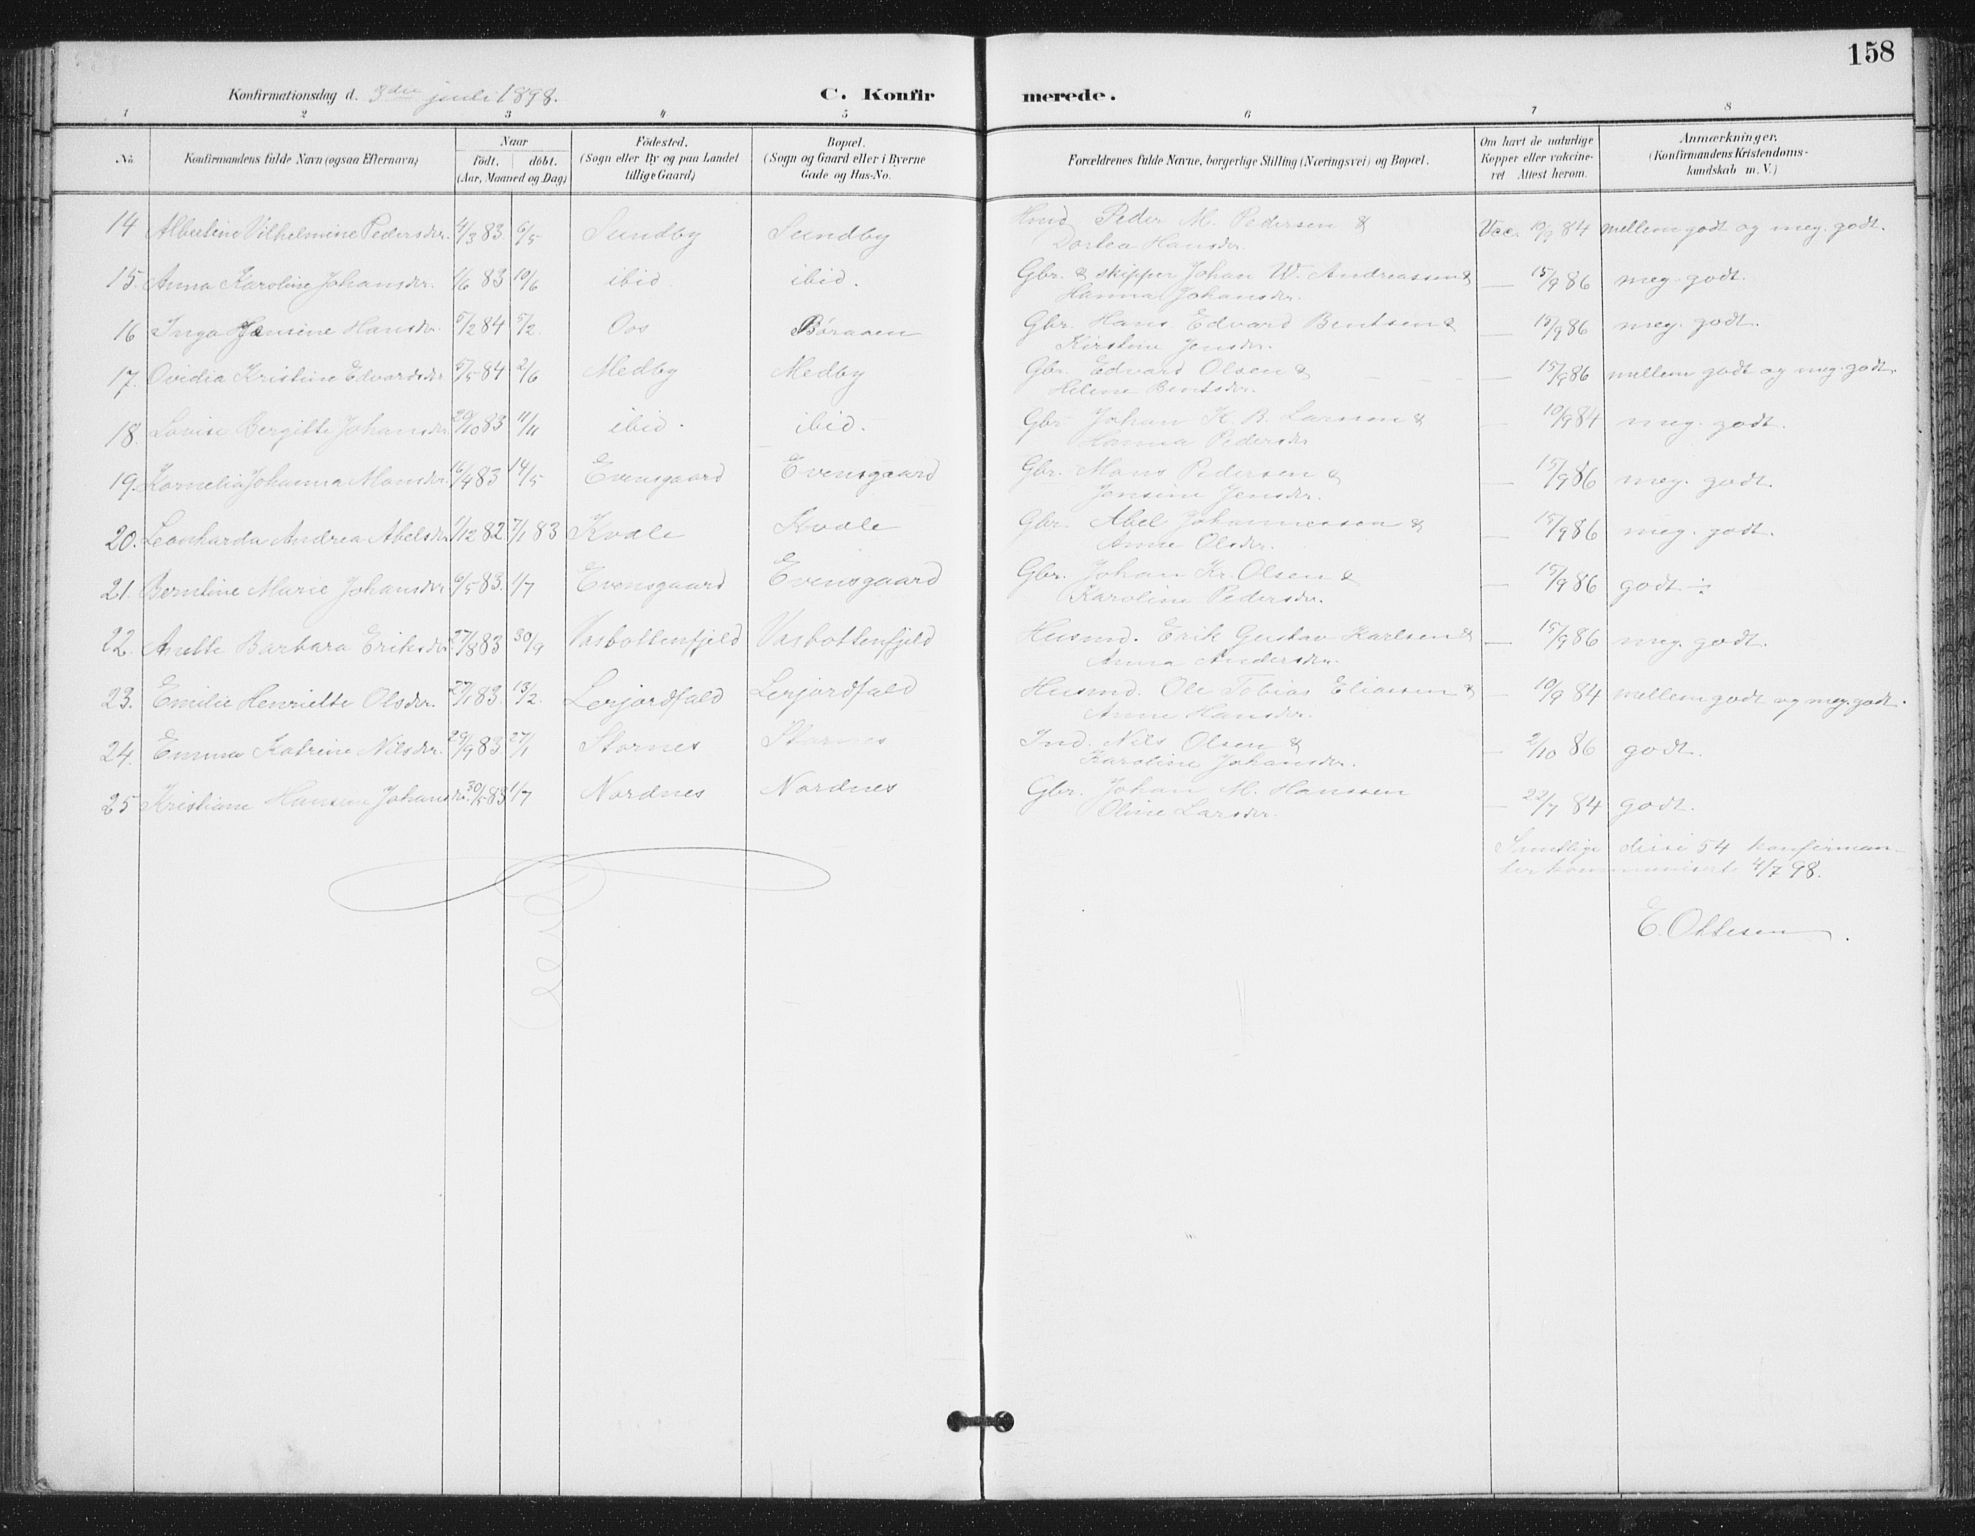 158
Konfirmationsdag d. 3die juli 1898. C. Konfirmerede.
1 2 3 4 5 6 7 8
No. Konfirmandens fulde Navn (ogsaa Efternavn) Naar født. døbt. (Aar, Maaned og Dag) Fødested. (Sogn eller By og paa Landet tillige Gaard) Bopæl. (Sogn og Gaard eller i Byerne Gade og Hus-No. Forældrenes fulde Navne, borgerlige Stilling (Næringsvei) og Bopæl. Om havt de naturlige Kopper eller vakcineret Attest herom. Anmærkninger. (Konfirmandens Kristendomskundskab m. V.)
14 Albertine Vilhelmine Pedersdr. 4/3 83 6/5 Sundby Sundby Hmd. Peder M. Pedersen & Vac. 10/9 84 mellem godt og meg. godt.
Dortea Hansdr.
15. Anna Karoline Johansdr. 1/6 83 10/6 ibid ibid. Gbr. & skipper Johan W. Andreassen & — 15/9 86 meg. godt.
Hanna Johansdr.
16 Inga Jensine Hansdr. 5/2 84 5/2. Oos Børaaen Gbr. Hans Edvard Bentsen & — 15/9 86 meg. godt.
Kirstine Jensdr.
17. Ovidia Kristine Edvardsdr. 5/5 84 2/6 Medby Medby Gbr. Edvard Olsen & — 15/9 86 mellem godt og meg. godt.
Helene Bentsdr.
18. Lovise Bergitte Johansdr. 20/10 83 11/11 ibid. ibid. Gbr. Johan K. B. Larsen & — 10/9 84 meg. godt.
Hanna Pedersdr
19. Kornelia Johanna Monsdr. 16/4 83 14/5 Evensgaard Evensgaard Gbr. Mons Pedersen & — 15/9 86 meg. godt.
Jensine Jensdr.
20. Leonharda Andrea Abelsdr. 1/12 82 7/1 83 Kvale Kvale Gbr. Abel Johannessen & — 15/9 86 meg. godt.
Anne Olsdr.
21. Berntine Marie Johansdr. 6/5 83. 1/7 Evensgaard Evensgaard Gbr. Johan Kr. Olsen & — 15/9 86 godt ÷
Karoline Pedersdr.
22. Anette Barbara Eriksdr. 27/8 83 30/9 Vasbottenfjeld Vasbottenfjeld Husmd. Erik Gustav Karlsen & — 15/9 86 meg. godt.
Anna Andersdr.
23. Emilie Henriette Olsdr. 27/1 83. 13/2. Lerjordfald Lerjordfald Husmd. Ole Tobias Eliassen & — 10/9 84 mellem godt og meg. godt.
Anne Hansdr.
24. Emma Katrine Nilsdr. 29/9 83 27/1 Stornes Stornes Ind. Nils Olsen & — 2/10 86 godt.
Karoline Johansdr.
25 Kristiane Hansine Johansdr. 30/5 83 1/7 Nordnes Nordnes Gbr. Johan M. Hanssen — 22/7 84 godt.
Oline Larsdr.
Samtlige disse 54 konfirman-
der kommuniserte 4/7 98.
E. Ottesen.